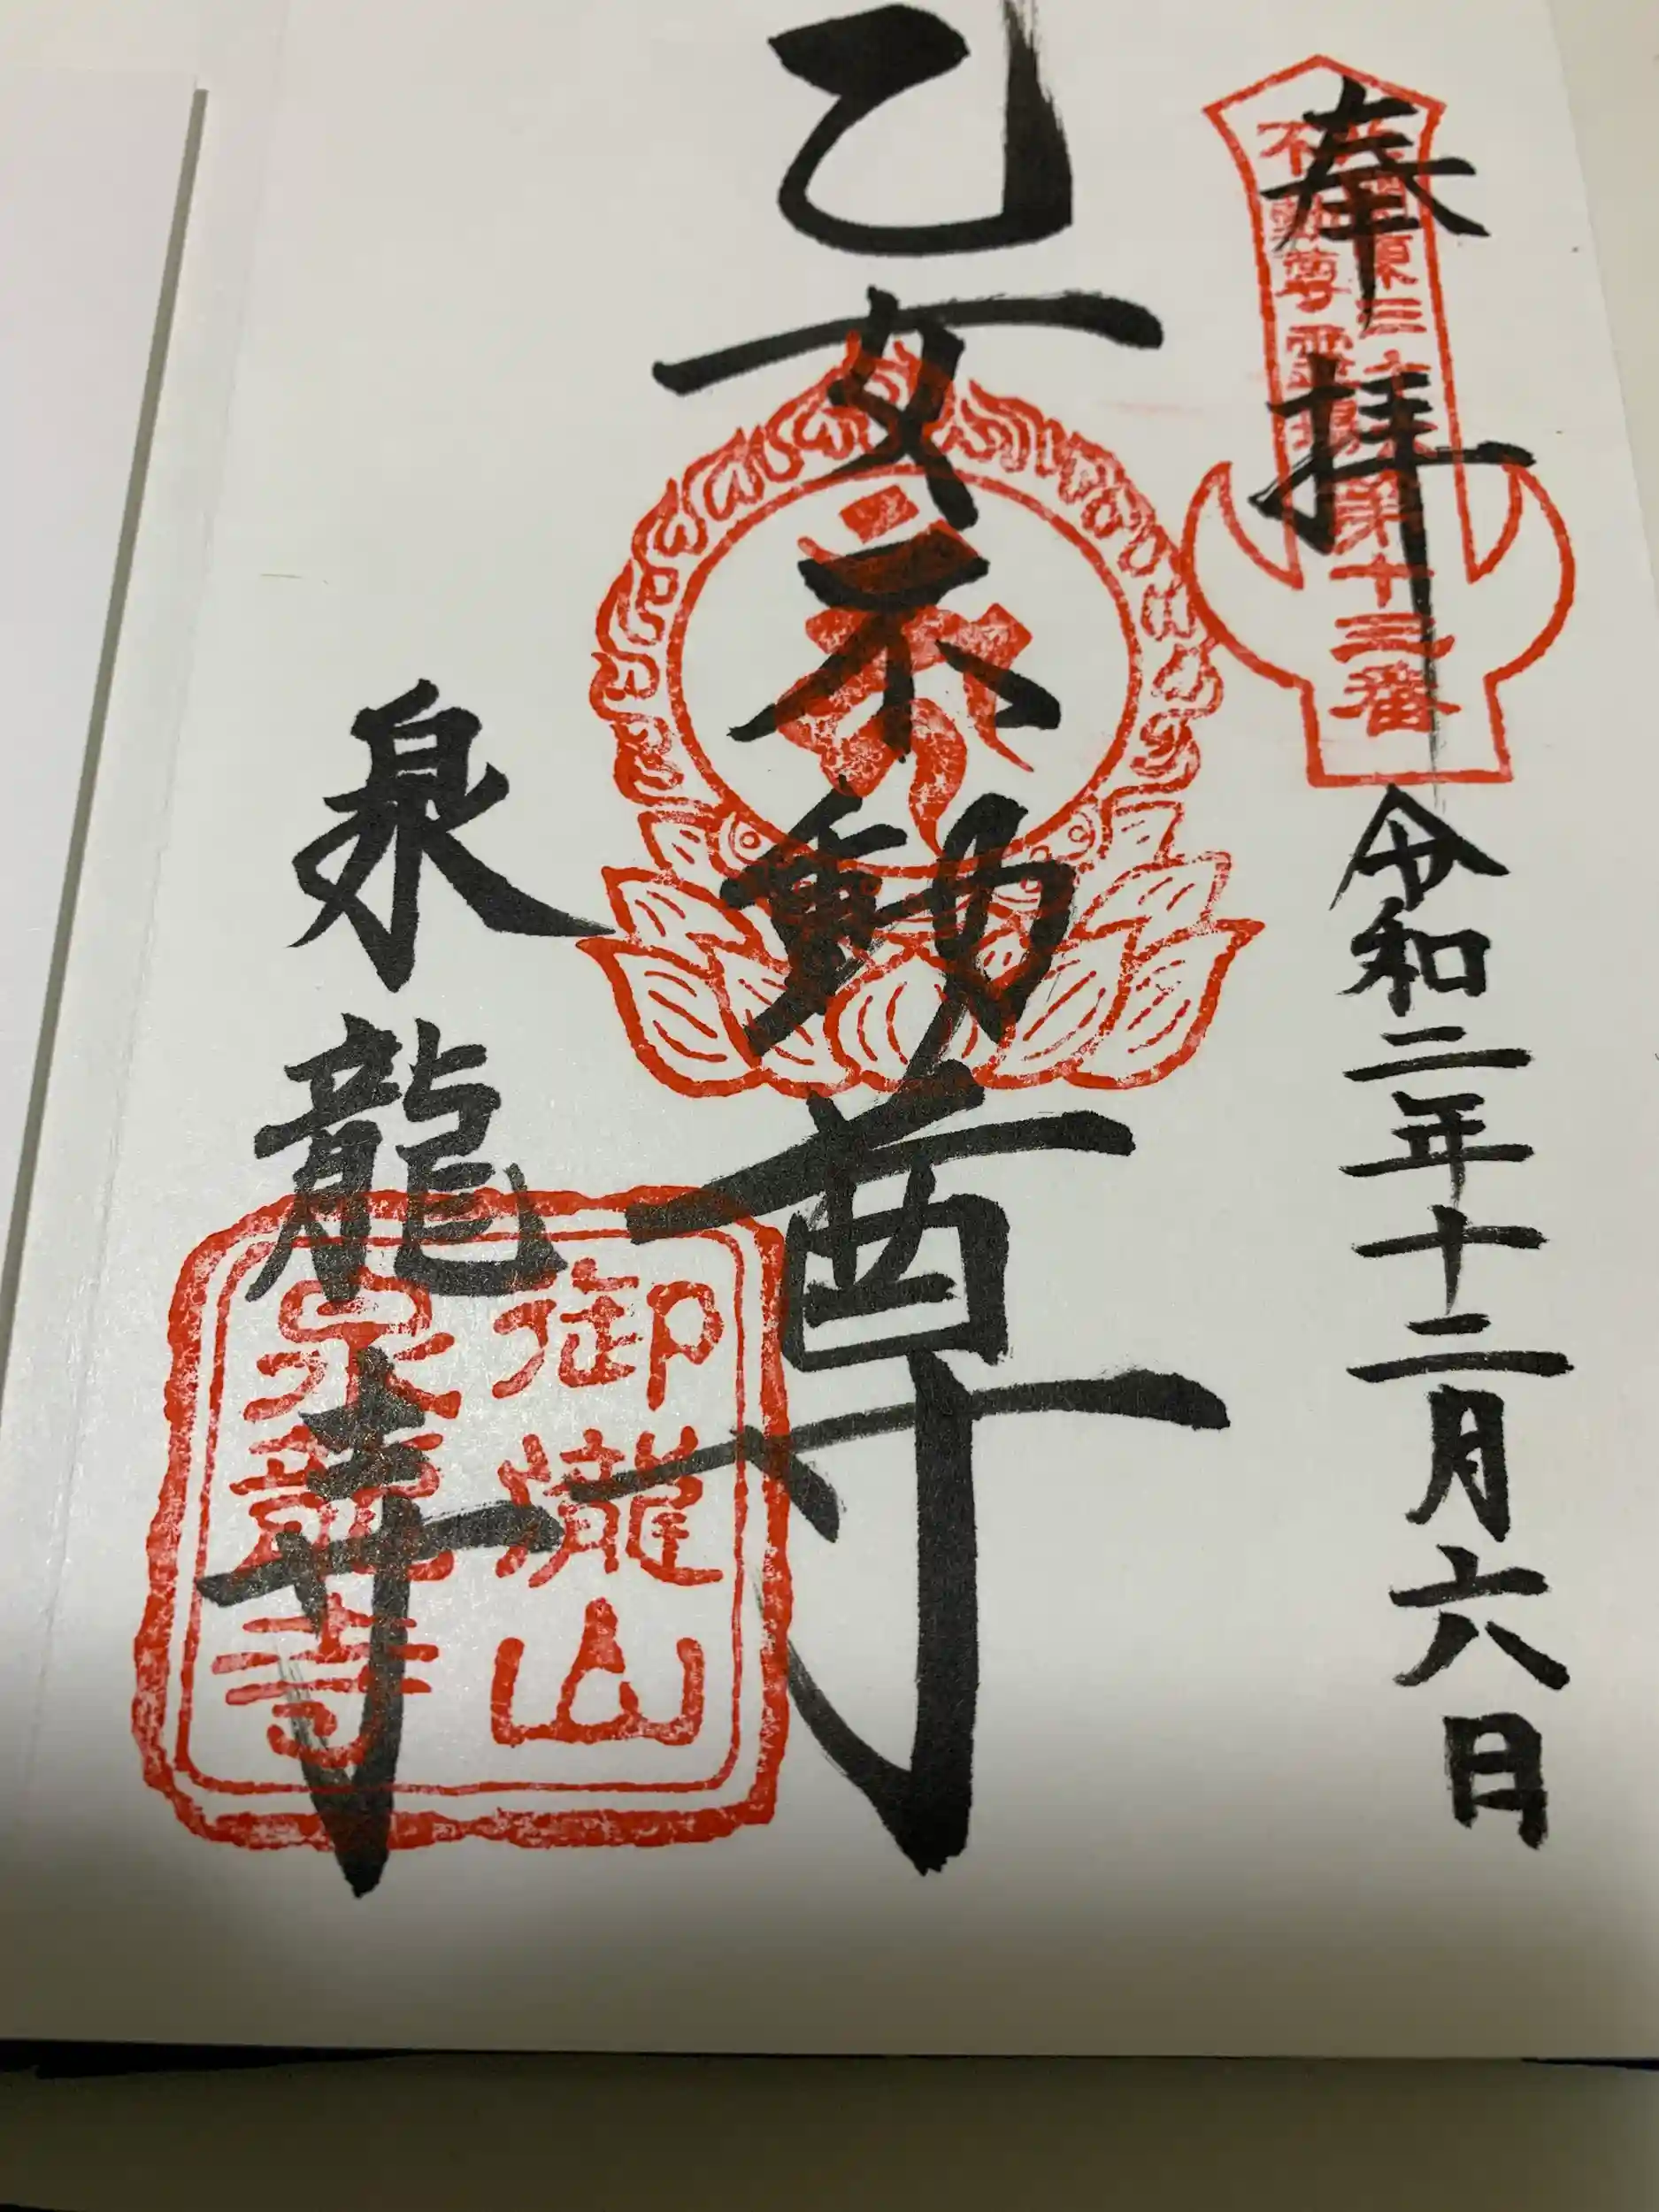 奉拝
令和二年十二月六日
不動尊霊場
第十三番
乙女不動尊
泉龍寺
御瀧山
泉龍寺